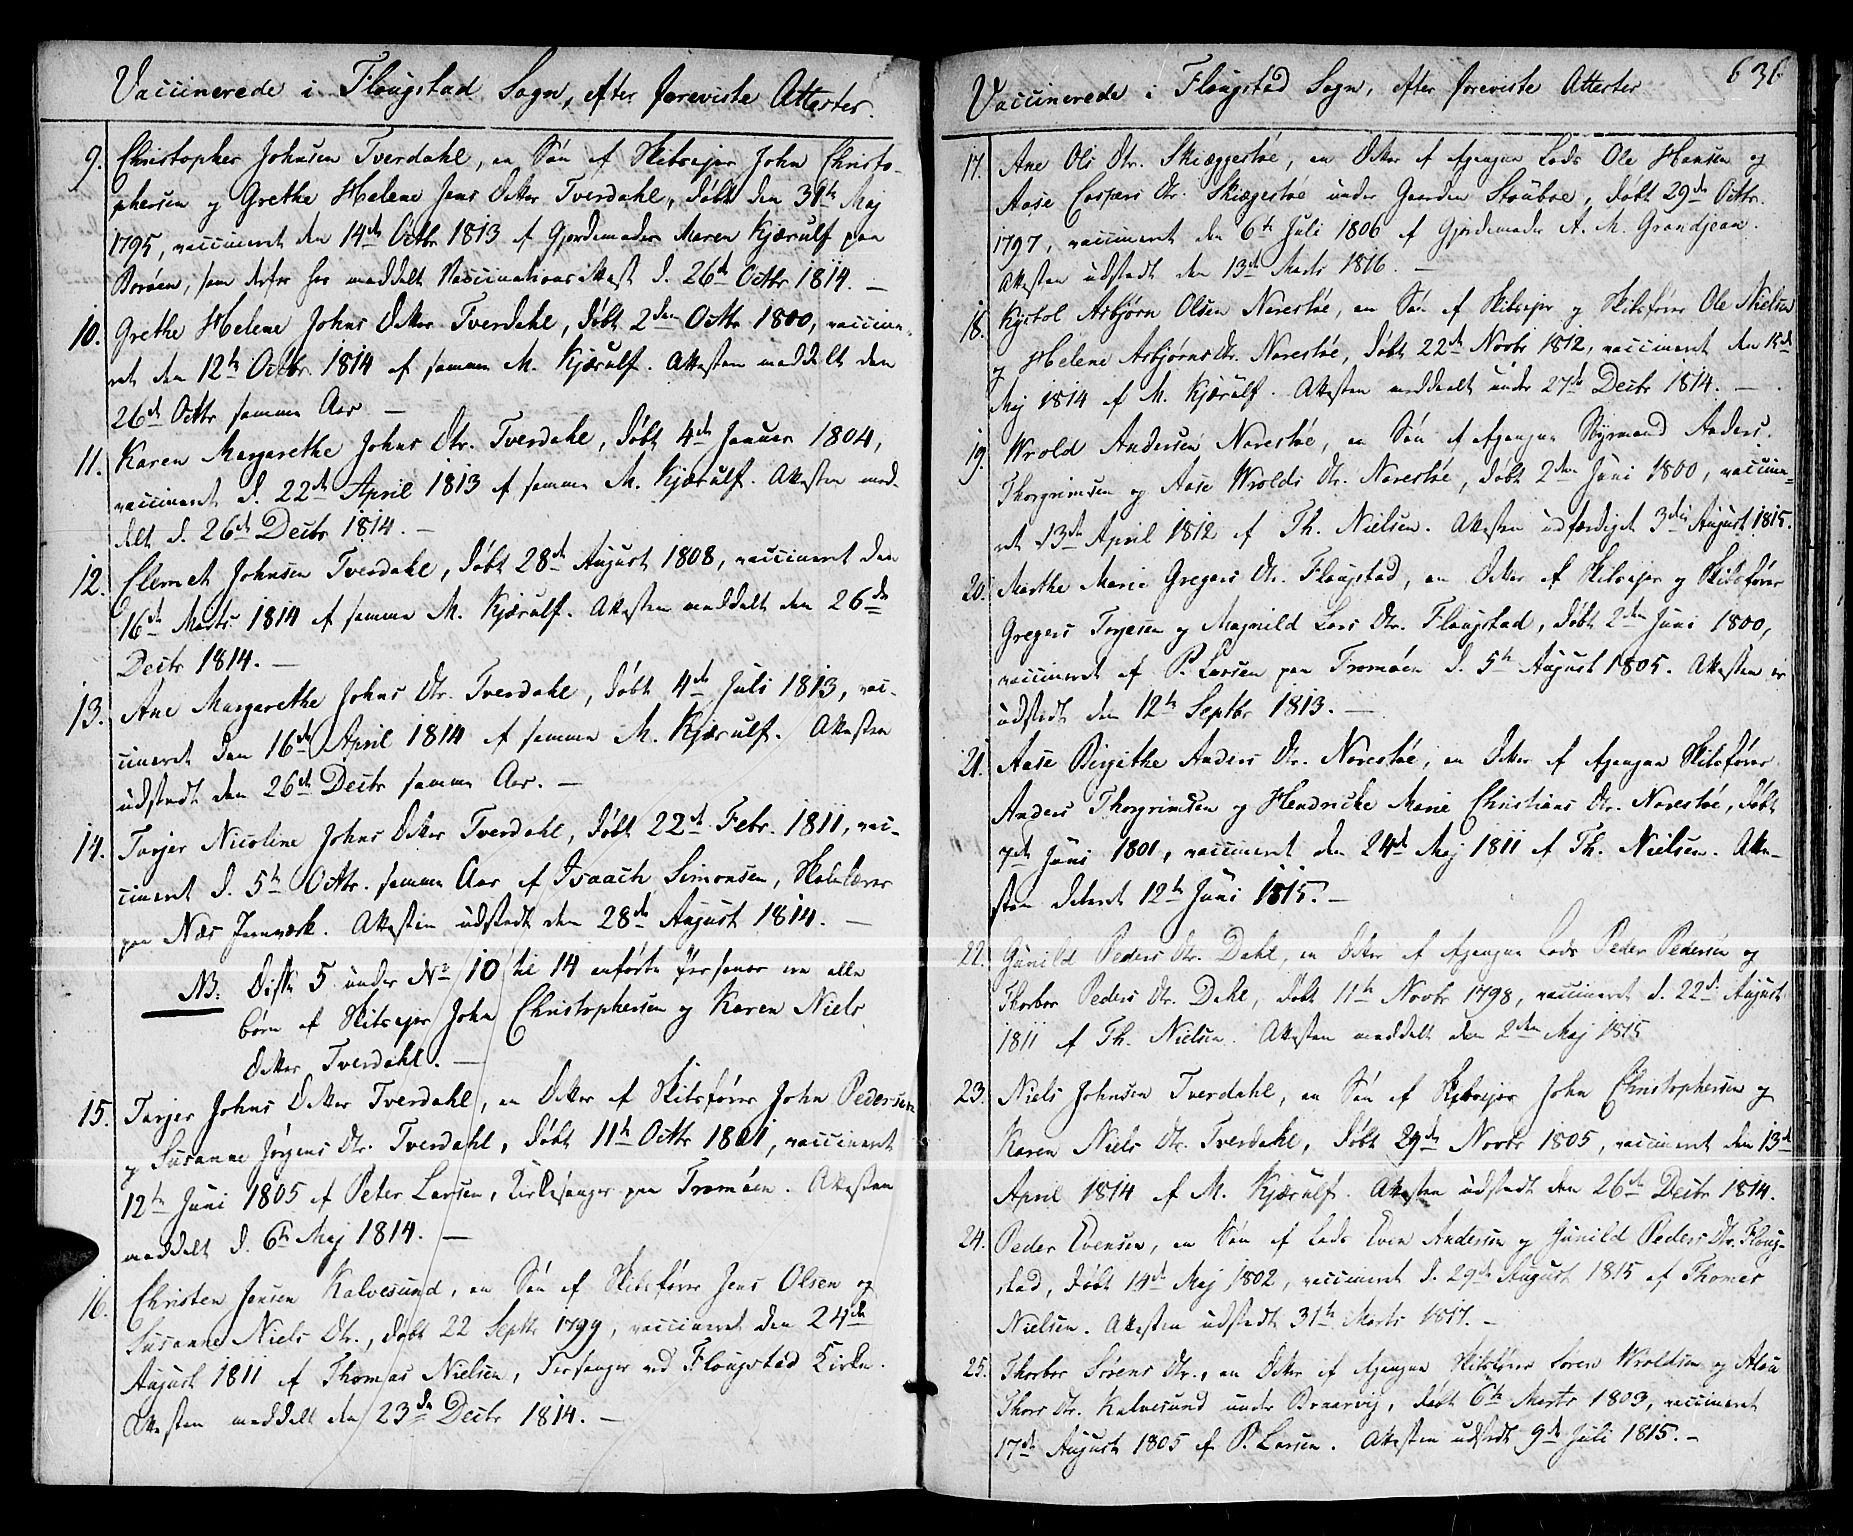 Vaccinerede i Flougstad Sogn, efter foreviste Attester.
9. Christopher Johnsen Tverdahl, en Søn af Skibsejer John Christo-
phersen og Grethe Helene Jens Dotter Tverdahl, døbt den 31te Maj
1795, vaccineret den 14de Octbr 1813 af Gjordemoder Maren Kjærulf paa
Borøen, som derfor har meddelt Vaccinations Attest d. 26de Octbr 1814. —
10. Grethe Helene Johns Dotter Tverdahl, døbt 2den Octbr 1800, vaccine-
ret den 12te Octbr. 1814 af samme M. Kjærulf. Attesten meddelt den
26de Octbr samme Aar —
11. Karen Margarethe Johns Dtr. Tverdahl, døbt 4de Januar 1804,
vaccineret d. 22de April 1813 af samme M. Kjærulf. Attesten med-
delt d. 26de Decbr 1814. —
12. Clemet Johnsen Tverdahl, døbt 28de August 1808, vaccineret den
16de Marts 1814 af samme M. Kjærulf. Attesten meddelt den 26de
Decbr 1814. —
13. Ane Margarethe Johns Dtr. Tverdahl, døbt 4de Juli 1813, vac-
cineret den 16de April 1814 af samme M. Kjærulf. Attesten
udstedt den 26de Decbr samme Aar. —
14. Tarjer Nicoline Johns Dotter Tverdahl, døbt 22de Febr. 1811, vac-
cineret d. 5te Octbr. samme Aar af Isaach Simonsen, Skolelærer
paa Næs Jernværk. Attesten udstedt den 28de August 1814. —
NB: Disse 5 under No 10 til 14 anførte Personer ere alle
børn af Skibsejer John Christophersen og Karen Niels
Dotter Tverdahl. —
15. Tarjer Johns Dotter Tverdahl, en Dotter af Skibsfører John Pedersen
og Susanne Jørgens Dtr. Tverdahl, døbt 11te Octbr 1801, vaccineret
12te Juni 1805 af Peter Larsen, Kirkesanger paa Tromøen. Attesten
meddelt d. 6te Maj 1814. —
16. Christen Jensen Kalvesund, en Søn af Skibsfører Jens Olsen og
Susanne Niels Dtr., døbt 22 Septbr 1799, vaccineret den 24de
August 1811 af Thomas Nielsen, Forsanger ved Flougstad Kirke.
Attesten meddelt den 23de Decbr 1814. —
636
Vaccinerede i Flougstad Sogn, efter foreviste Attester
17. Ane Ols Dtr. Skiæggestøe, en Dotter af afgangne Lods Ole Hansen og
Aase Caspers Dtr. Skiæggestøe under Gaarden Stoubøe, døbt 29de Octbr.
1797, vaccineret den 6te Juli 1806 af Gjordemoder A. M. Grandjean.
Attesten udstedt den 13de Marts 1816. —
18. Kystol Asbjørn Olsen Narestøe, en Søn af Skibsejer og Skibsfører Ole Nielsen
og Helene Asbjørns Dtr. Narestøe, døbt 22de Novbr 1812, vaccineret den 15de
Maj 1814 af M. Kjærulf. Attesten meddeelt under 27de Decbr 1814. —
19. Wrold Andersen Narestøe, en Søn af afgangne Styrmand Anders
Thorgrimsen og Aase Wrolds Dtr. Narestøe, døbt 2den Juni 1800, vaccine-
ret 13de April 1812 af Th. Nielsen. Attesten udfærdiget 3die August 1815.
20. Marthe Marie Gregers Dtr. Flougstad, en Dotter af Skibsejer og Skibsfører
Gregers Torjesen og Magnild Lars Dtr. Flougstad, døbt 2den Juni 1800,
vaccineret af P. Larsen paa Tromøen d. 5te August 1805. Attesten er
udstedt den 12te Septbr 1813. —
21. Aase Birgithe Anders Dtr. Narestøe, en Dotter af afgangne Skibsfører
Anders Thorgrimsen og Hendricke Marie Christians Dtr. Narestøe, døbt
7de Juni 1801, vaccineret den 24de Maj 1811 af Th. Nielsen. Atte-
sten dateret 12te Juni 1815. —
22. Gunild Peders Dtr. Dahl, en Dotter af afgangne Lods Peder Pedersen og
Thorbor Peders Dtr. Dahl, døbt 11te Novbr 1798, vaccineret d. 22de August
1811 af Th. Nielsen. Attesten meddelt den 2den Maj 1815
23. Niels Johnsen Tverdahl, en Søn af Skibsejer John Christophersen og
Karen Niels Dtr. Tverdahl, døbt 29de Novbr 1805, vaccineret den 13de
April 1814 af M. Kjærulf. Attesten udstedt den 26de Decbr 1814.
24. Peder Evensen, en Søn af Lods Even Andersen og Gunild Peders Dtr. Floug-
stad, døbt 14de Maj 1802, vaccineret d. 29de August 1815 af Thomas
Nielsen. Attesten udstedt 31te Marts 1817. —
25. Thorbor Sørens Dtr., en Dotter af afgangne Skibsfører Søren Wroldsen og
Thors Dtr. Kalvesund under Braarvig, døbt 6te Marts 1803, vaccineret
17de August 1805 af P. Larsen. Attesten udstedt 9de Juli 1815. —